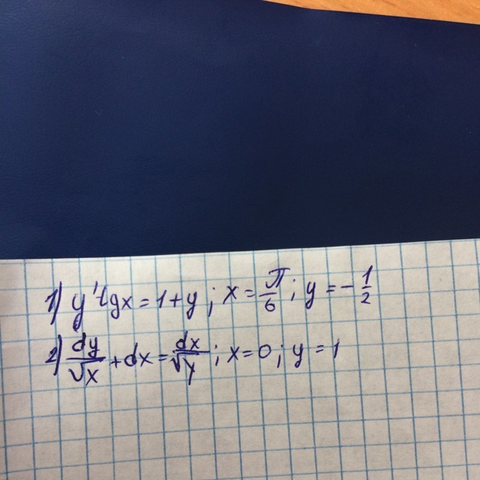 1) y' tgx = 1 + y ; x = π/6 ; y = -1/2
2) dy/√x + dx = dx/√y ; x = 0 ; y = 1